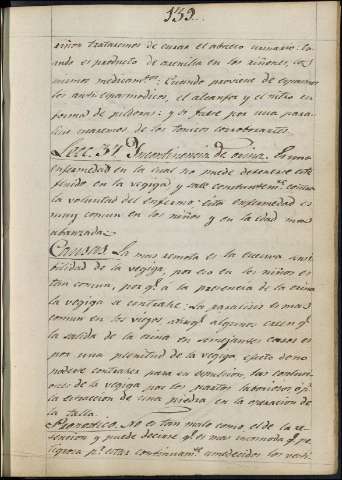 139.
riñon trataremos de curar el absceso urinario: cu
ando es producto de arenilla en los riñones, los
mismos medicamtos. Cuando proviene de espasmos
los antiespasmodicos, el alcanfor y el nitro en
forma de pildoras: y si fuese por una para
lisis usaremos de los tonicos corroborantes.
Lecc. 34. Incontinencia de orina. Es una
enfermedad en la cual no puede detenerse este
fluido en la vegiga y sale constantemte. contra
la voluntad del enfermo: esta enfermedad es
muy comun en los niños y en la edad mas
abanzada.
Causas. La mas remota es la escesiva sensi
bilidad de la vegiga, por eso en los niños es
tan comun, porq. á la presencia de la orina
la vegiga se contrahe: La paralisis es mas
comun en los viejos aunq. algunos creen q.
la salida de la orina en semejantes casos es
por una plenitud de la vegiga efecto de no
poderse contraher para su espulsion, las contusio
nes de la vegiga por los partos laboriosos ó pr.
la estraccion de una piedra en la operacion de
la talla.
Pronostico. No es tan malo como el de la re
tencion y puede decirse q. es mas incomoda q. pe
ligrosa pr. estar continuamte. umedecidos los vesti